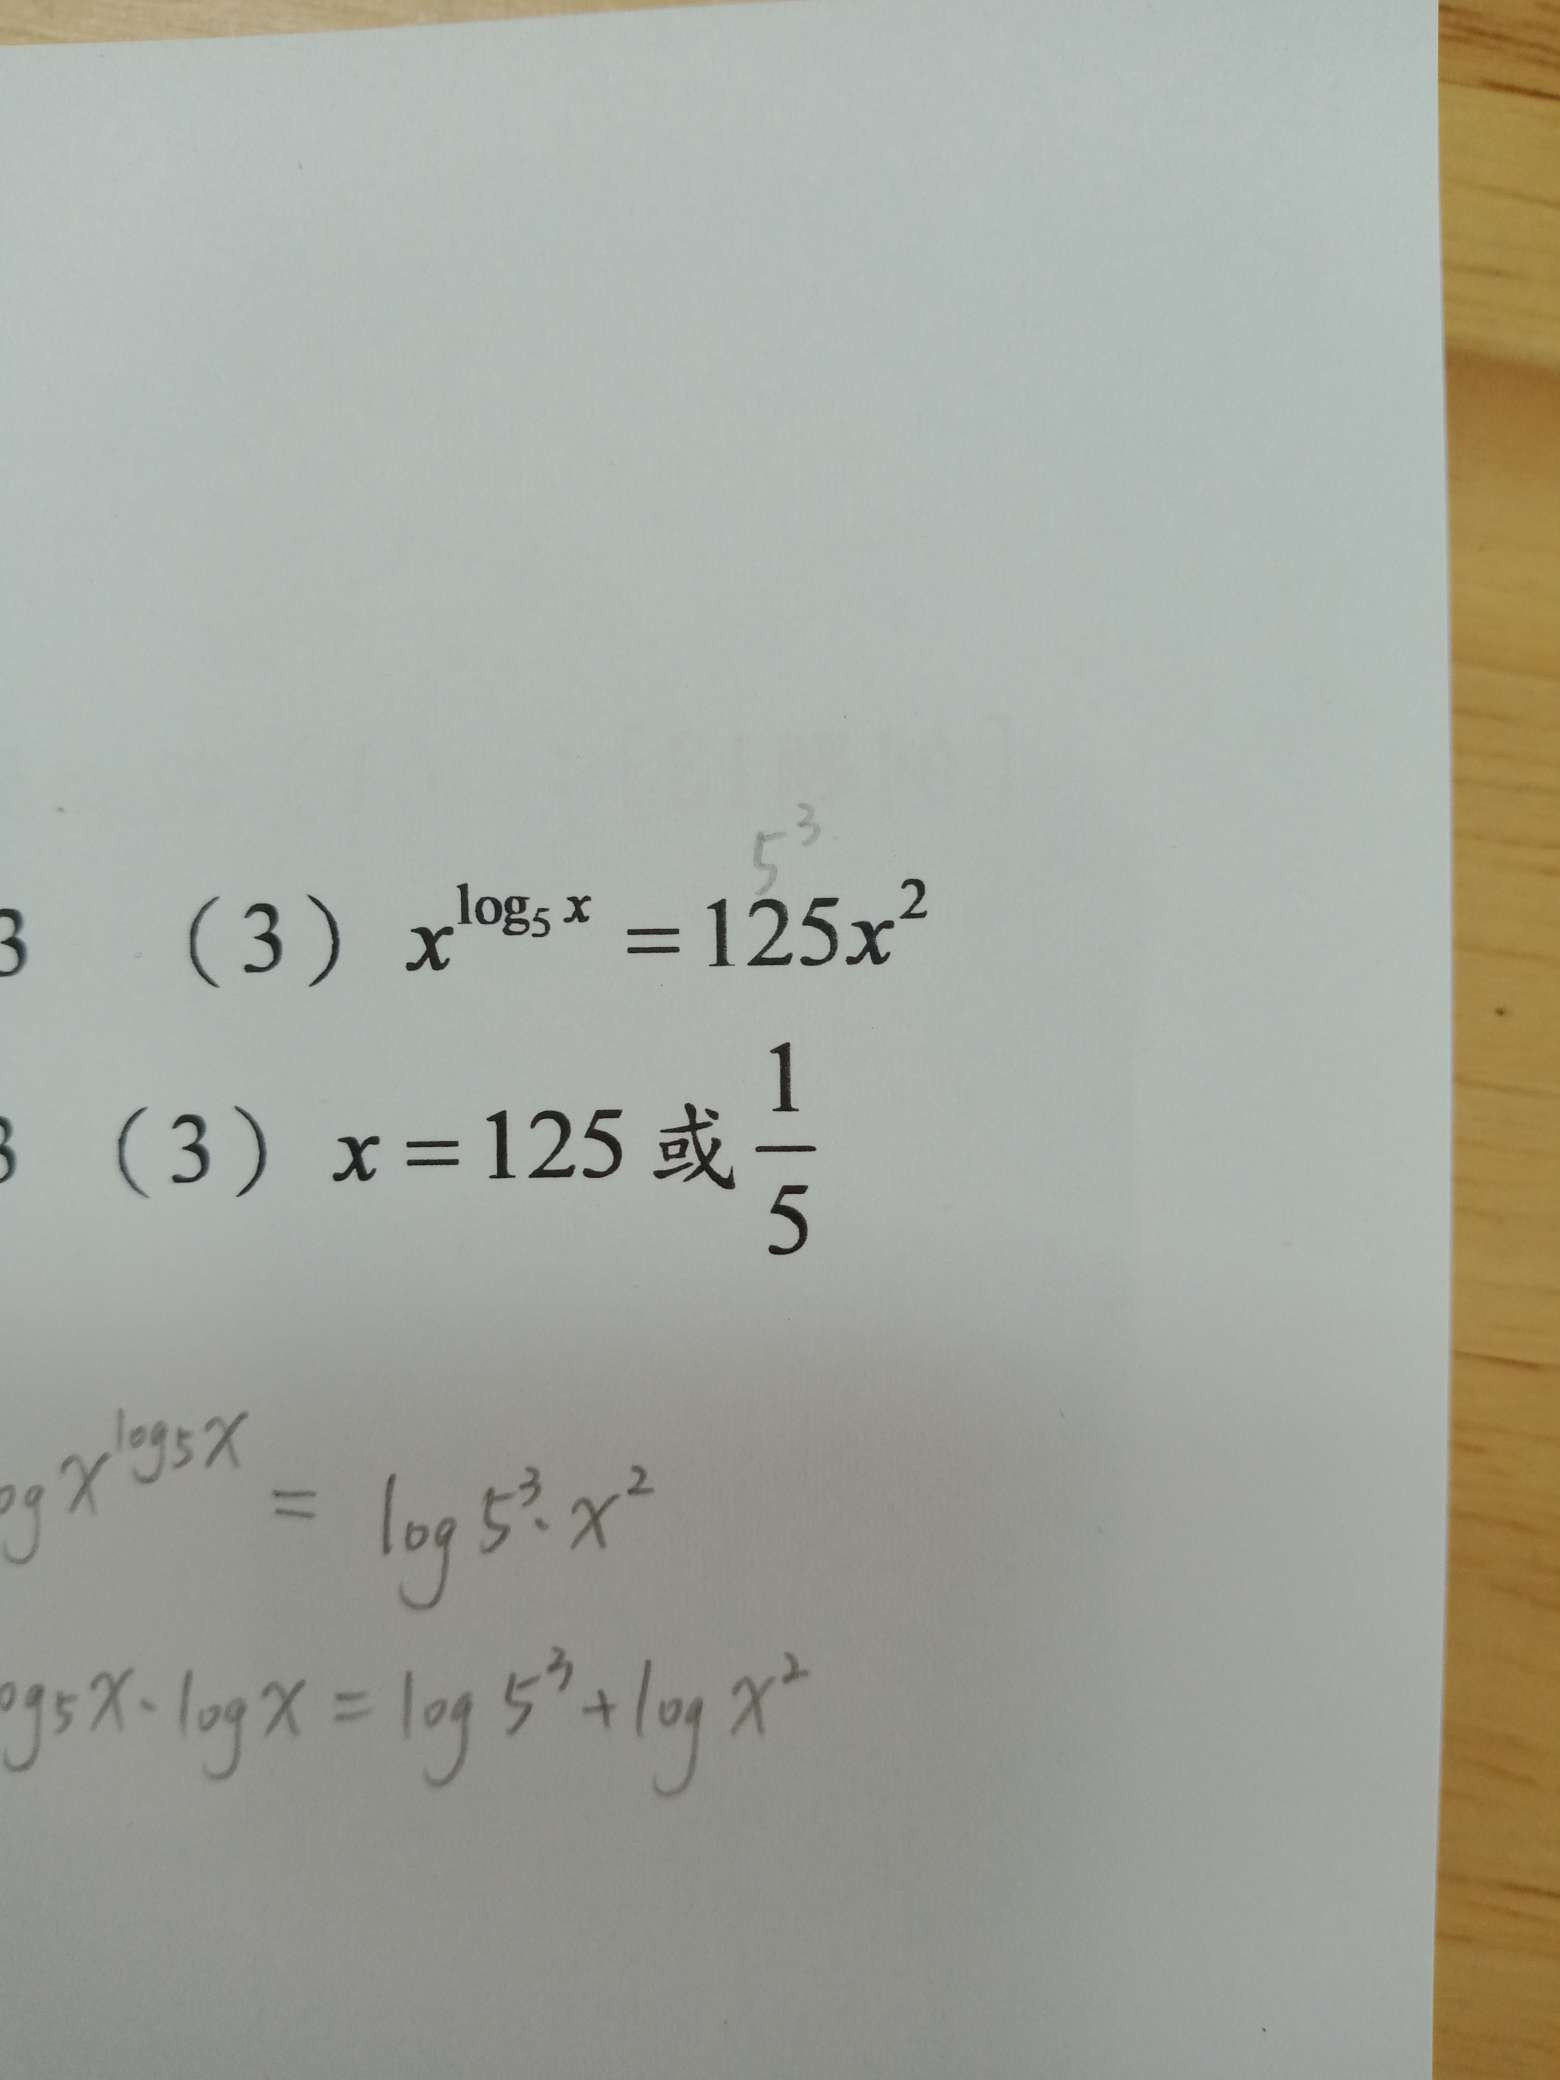 3 （3） x^{log₅ x} = 125x²
5³
3 （3） x = 125 或 1/5
og x^{log5x} = log 5³·x²
og5x·log x = log 5³ + log x²